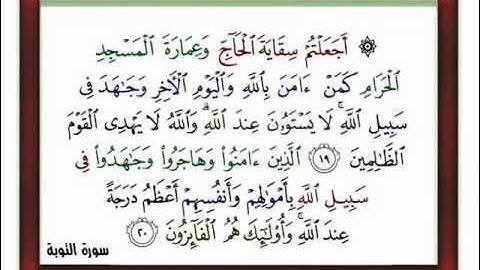 ۞ أَجَعَلْتُمْ سِقَايَةَ الْحَآجِّ وَعِمَارَةَ الْمَسْجِدِ
الْحَرَامِ كَمَنْ ءَامَنَ بِاللَّهِ وَالْيَوْمِ الْأَخِرِ وَجَٰهَدَ فِى
سَبِيلِ اللَّهِ ۚ لَا يَسْتَوُۥنَ عِندَ اللَّهِ ۗ وَاللَّهُ لَا يَهْدِى الْقَوْمَ
الظَّٰلِمِينَ ۝١٩ الَّذِينَ ءَامَنُوا۟ وَهَاجَرُوا۟ وَجَٰهَدُوا۟ فِى
سَبِيلِ اللَّهِ بِأَمْوَٰلِهِمْ وَأَنفُسِهِمْ أَعْظَمُ دَرَجَةً
عِندَ اللَّهِ ۚ وَأُو۟لَٰٓئِكَ هُمُ الْفَآئِزُونَ ۝٢٠
سورة التوبة